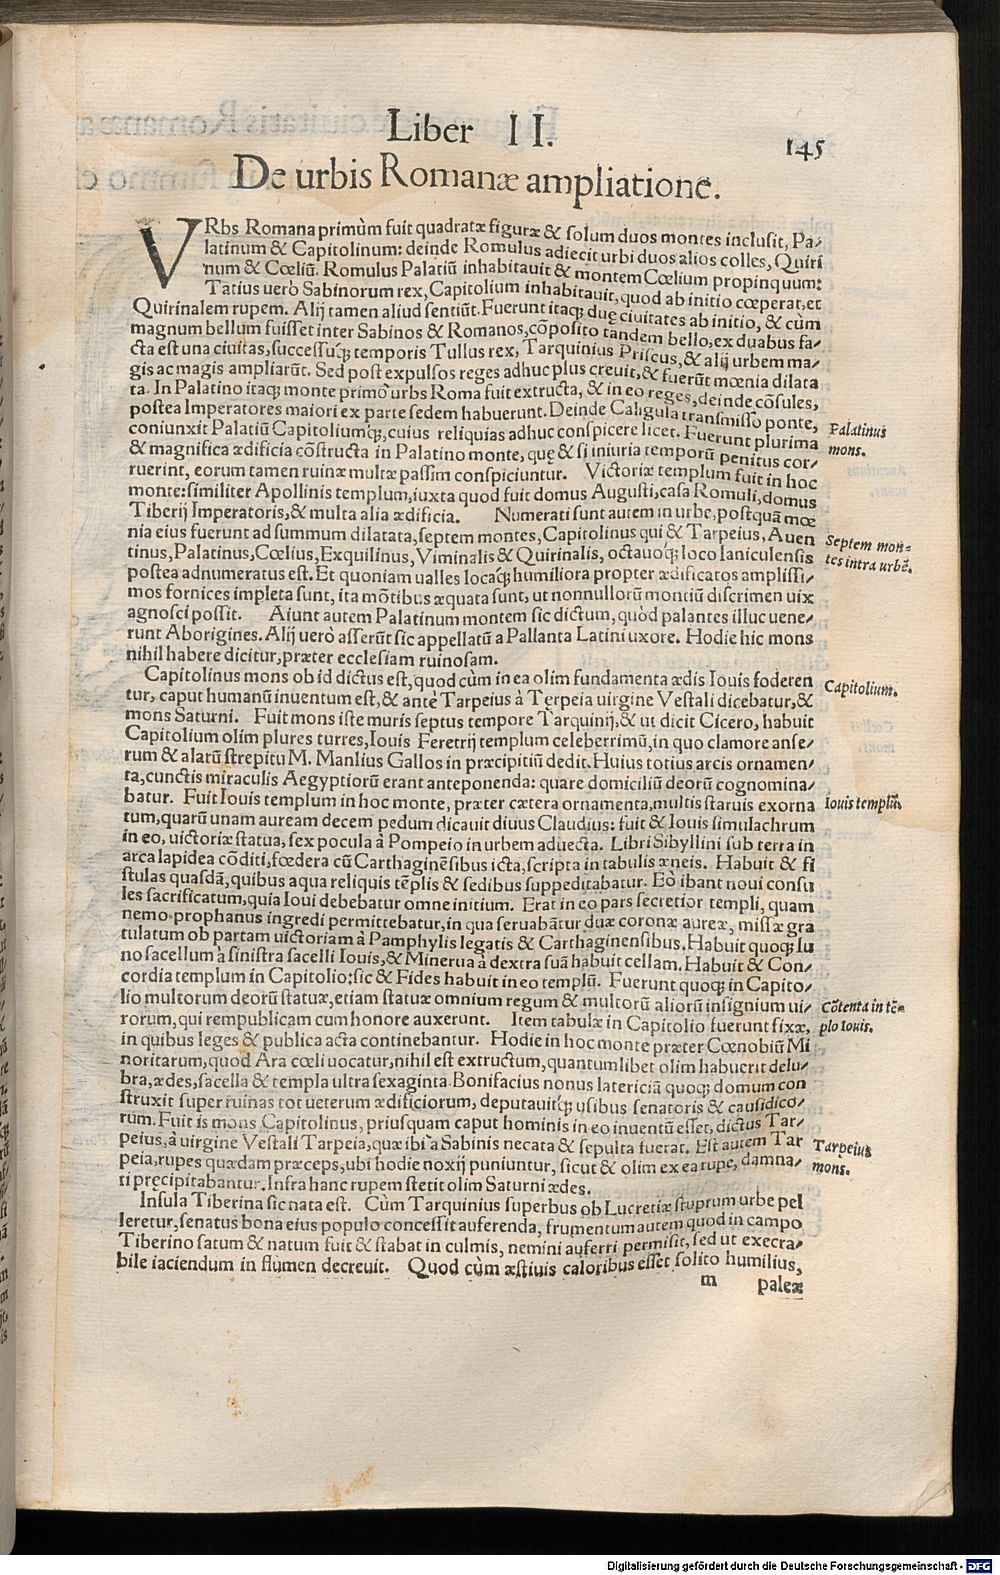 Liber II.
145
De urbis Romanæ ampliatione.
VRbs Romana primùm fuit quadratæ figuræ & solum duos montes inclusit, Pa-
latinum & Capitolinum: deinde Romulus adiecit urbi duos alios colles, Quiri
num & Cœliũ. Romulus Palatiũ inhabitauit & montem Cœlium propinquum:
Tatius uerò Sabinorum rex, Capitolium inhabitauit, quod ab initio cœperat, et
Quirinalem rupem. Alij tamen aliud sentiũt. Fuerunt itaq; duę ciuitates ab initio, & cùm
magnum bellum fuisset inter Sabinos & Romanos, cõposito tandem bello, ex duabus fa-
cta est una ciuitas, successuq́; temporis Tullus rex, Tarquinius Priscus, & alij urbem ma-
gis ac magis ampliarũt. Sed post expulsos reges adhuc plus creuit, & fuerũt mœnia dilata
ta. In Palatino itaq; monte primò urbs Roma fuit extructa, & in eo reges, deinde cõsules,
postea Imperatores maiori ex parte sedem habuerunt. Deinde Caligula transmisso ponte,
coniunxit Palatiũ Capitoliumq́;, cuius reliquias adhuc conspicere licet. Fuerunt plurima
Palatinus
mons.
& magnifica ædificia cõstructa in Palatino monte, quę & si iniuria temporũ penitus cor-
ruerint, eorum tamen ruinæ multæ passim conspiciuntur. Victoriæ templum fuit in hoc
monte: similiter Apollinis templum, iuxta quod fuit domus Augusti, casa Romuli, domus
Tiberij Imperatoris, & multa alia ædificia. Numerati sunt autem in urbe, postquã mœ
nia eius fuerunt ad summum dilatata, septem montes, Capitolinus qui & Tarpeius, Auen
Septem mon-
tes intra urbẽ.
tinus, Palatinus, Cœlius, Exquilinus, Viminalis & Quirinalis, octauoq́; loco Ianiculensis
postea adnumeratus est. Et quoniam ualles locaq́; humiliora propter ædificatos amplissi-
mos fornices impleta sunt, ita mõtibus æquata sunt, ut nonnullorũ montiũ discrimen uix
agnosci possit. Aiunt autem Palatinum montem sic dictum, quòd palantes illuc uene-
runt Aborigines. Alij uerò asserũt sic appellatũ a Pallanta Latini uxore. Hodie hic mons
nihil habere dicitur, præter ecclesiam ruinosam.
Capitolinus mons ob id dictus est, quod cùm in ea olim fundamenta ædis Iouis foderen
Capitolium.
tur, caput humanũ inuentum est, & antè Tarpeius à Terpeia uirgine Vestali dicebatur, &
mons Saturni. Fuit mons iste muris septus tempore Tarquinij, & ut dicit Cicero, habuit
Capitolium olim plures turres, Iouis Feretrij templum celeberrimũ, in quo clamore anse-
rum & alarũ strepitu M. Manlius Gallos in præcipitiũ dedit. Huius totius arcis ornamen-
ta, cunctis miraculis Aegyptiorũ erant anteponenda: quare domiciliũ deorũ cognomina-
batur. Fuit Iouis templum in hoc monte, præter cætera ornamenta, multis statuis exorna
Iouis templũ.
tum, quarũ unam auream decem pedum dicauit diuus Claudius: fuit & Iouis simulachrum
in eo, uictoriæ statua, sex pocula à Pompeio in urbem aduecta. Libri Sibyllini sub terra in
arca lapidea cõditi, fœdera cũ Carthaginẽsibus icta, scripta in tabulis æneis. Habuit & fi
stulas quasdã, quibus aqua reliquis tẽplis & sedibus suppeditabatur. Eò ibant noui consu
les sacrificatum, quia Ioui debebatur omne initium. Erat in eo pars secretior templi, quam
nemo prophanus ingredi permittebatur, in qua seruabãtur duæ coronæ aureæ, missæ gra
tulatum ob partam uictoriam à Pamphylis legatis & Carthaginensibus. Habuit quoq; Iu
no sacellum à sinistra sacelli Iouis, & Minerua à dextra suã habuit cellam. Habuit & Con-
cordia templum in Capitolio: sic & Fides habuit in eo templũ. Fuerunt quoq; in Capito-
lio multorum deorũ statuæ, etiam statuæ omnium regum & multorũ aliorũ insignium ui-
Cõtenta in tẽ-
plo Iouis.
rorum, qui rempublicam cum honore auxerunt. Item tabulæ in Capitolio fuerunt fixæ,
in quibus leges & publica acta continebantur. Hodie in hoc monte præter Cœnobiũ Mi
noritarum, quod Ara cœli uocatur, nihil est extructum, quantumlibet olim habuerit delu-
bra, ædes, sacella & templa ultra sexaginta. Bonifacius nonus latericiã quoq; domum con
struxit super ruinas tot ueterum ædificiorum, deputauitq́; usibus senatoris & causidico-
rum. Fuit is mons Capitolinus, priusquam caput hominis in eo inuentũ esset, dictus Tar-
peius, à uirgine Vestali Tarpeia, quæ ibi à Sabinis necata & sepulta fuerat. Est autem Tar
Tarpeius
mons.
peia, rupes quædam præceps, ubi hodie noxij puniuntur, sicut & olim ex ea rupe, damna-
ti præcipitabantur. Infra hanc rupem stetit olim Saturni ædes.
Insula Tiberina sic nata est. Cùm Tarquinius superbus ob Lucretiæ stuprum urbe pel
leretur, senatus bona eius populo concessit auferenda, frumentum autem quod in campo
Tiberino satum & natum fuit & stabat in culmis, nemini auferri permisit, sed ut execra-
bile iaciendum in flumen decreuit. Quod cùm æstiuis caloribus esset solito humilius,
m
paleæ
Digitalisierung gefördert durch die Deutsche Forschungsgemeinschaft - DFG